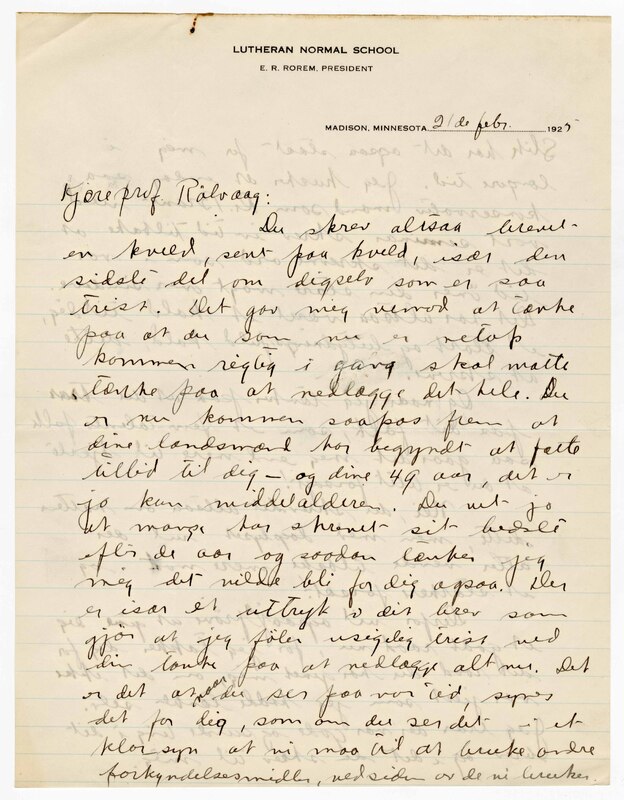 LUTHERAN NORMAL SCHOOL
E. R. ROREM, PRESIDENT
MADISON, MINNESOTA 21de febr. 1925
Kjære prof. Rölvaag:
Du skrev altsaa brevet
en kveld, sent paa kveld, især den
sidste del om digselv som er saa
trist. Det gav mig vemod at tænke
paa at du som nu er netop
kommen rigtig i gang skal maatte
tænke paa at nedlægge det hele. Du
er nu kommen saapas frem at
dine landsmænd har begyndt at fatte
tillid til dig – og dine 49 aar, det er
jo kun middelalderen. Du vet jo
at mange har skrevet sit bedste
efter de aar og saadan tænker jeg
mig det vilde bli for dig ogsaa. Der
er især et uttryk i dit brev som
gjör at jeg föler usigelig trist ved
din tanke paa at nedlægge alt nu. Det
er det at naar du ser paa vor tid, synes
det for dig, som om du ser det i et
klar syn at vi maa til at bruke andre
forkyndelsesmidler, ved siden av de vi bruker.